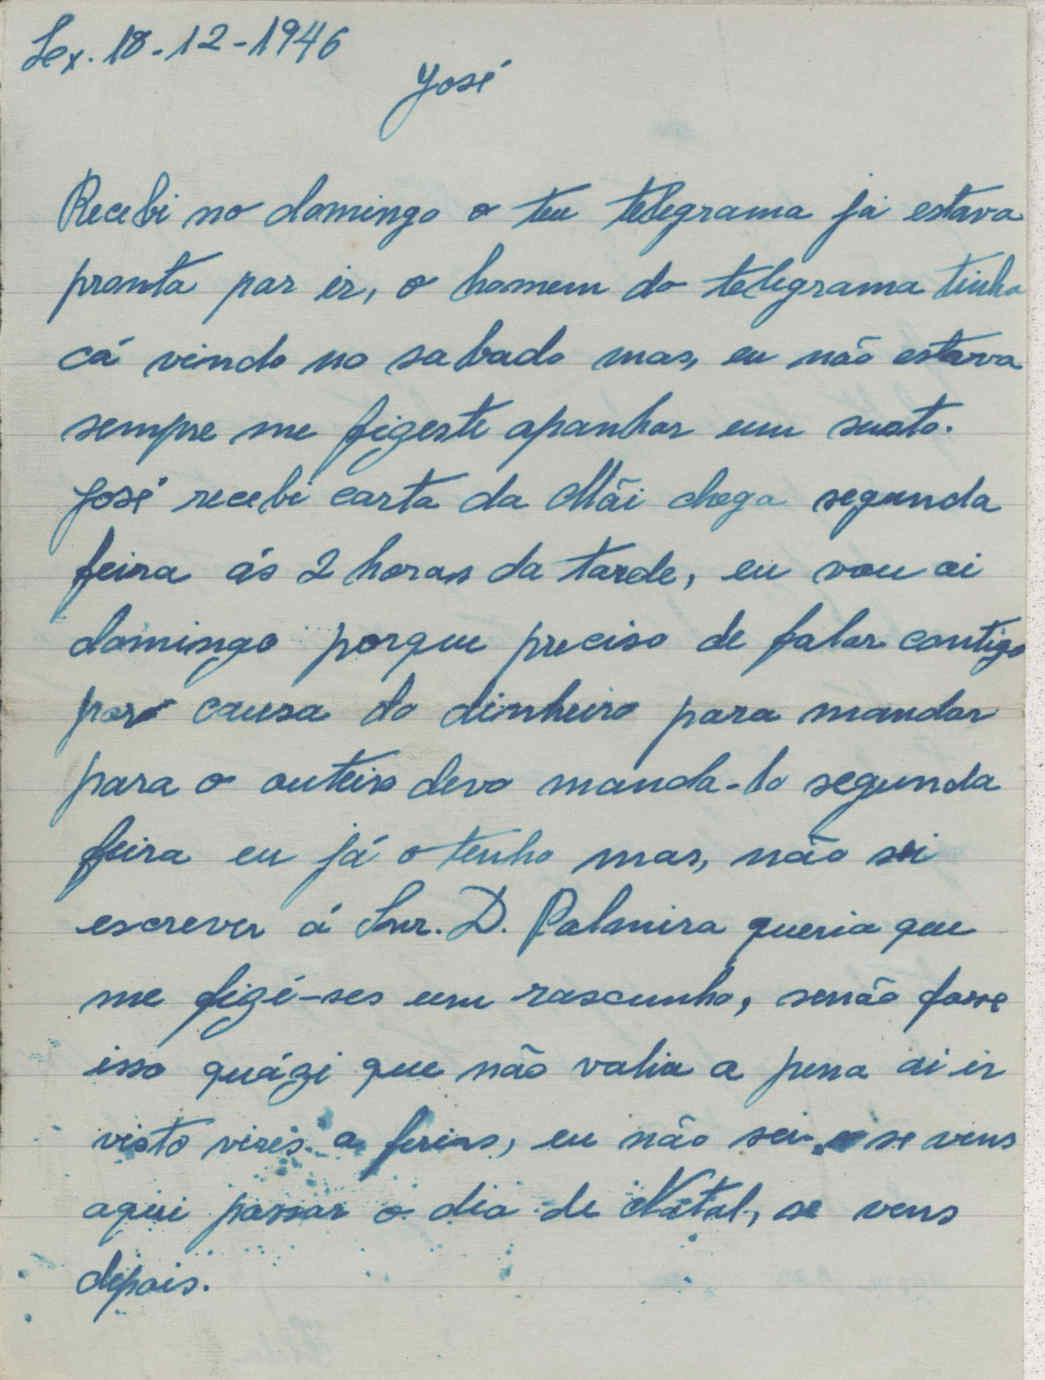 Lex. 18-12-1946
José
Recebi no domingo o teu telegrama já estava
pronta par ir, o homem do telegrama tinha
cá vindo no sabado mas, eu não estava
sempre me figeste apanhar um susto.
José recebi carta da Mãi chega segunda
feira ás 2 horas da tarde, eu vou ai
domingo porque preciso de falar contigo
por causa do dinheiro para mandar
para o outeiro devo manda-lo segunda
feira eu já o tenho mas, não sei
escrever á Snr. D. Palmira queria que
me figé-ses um rascunho, senão fosse
isso quázi que não valia a pena ai ir
visto vires a ferias, eu não sei se vens
aqui passar o dia de Natal, se vens
depois.